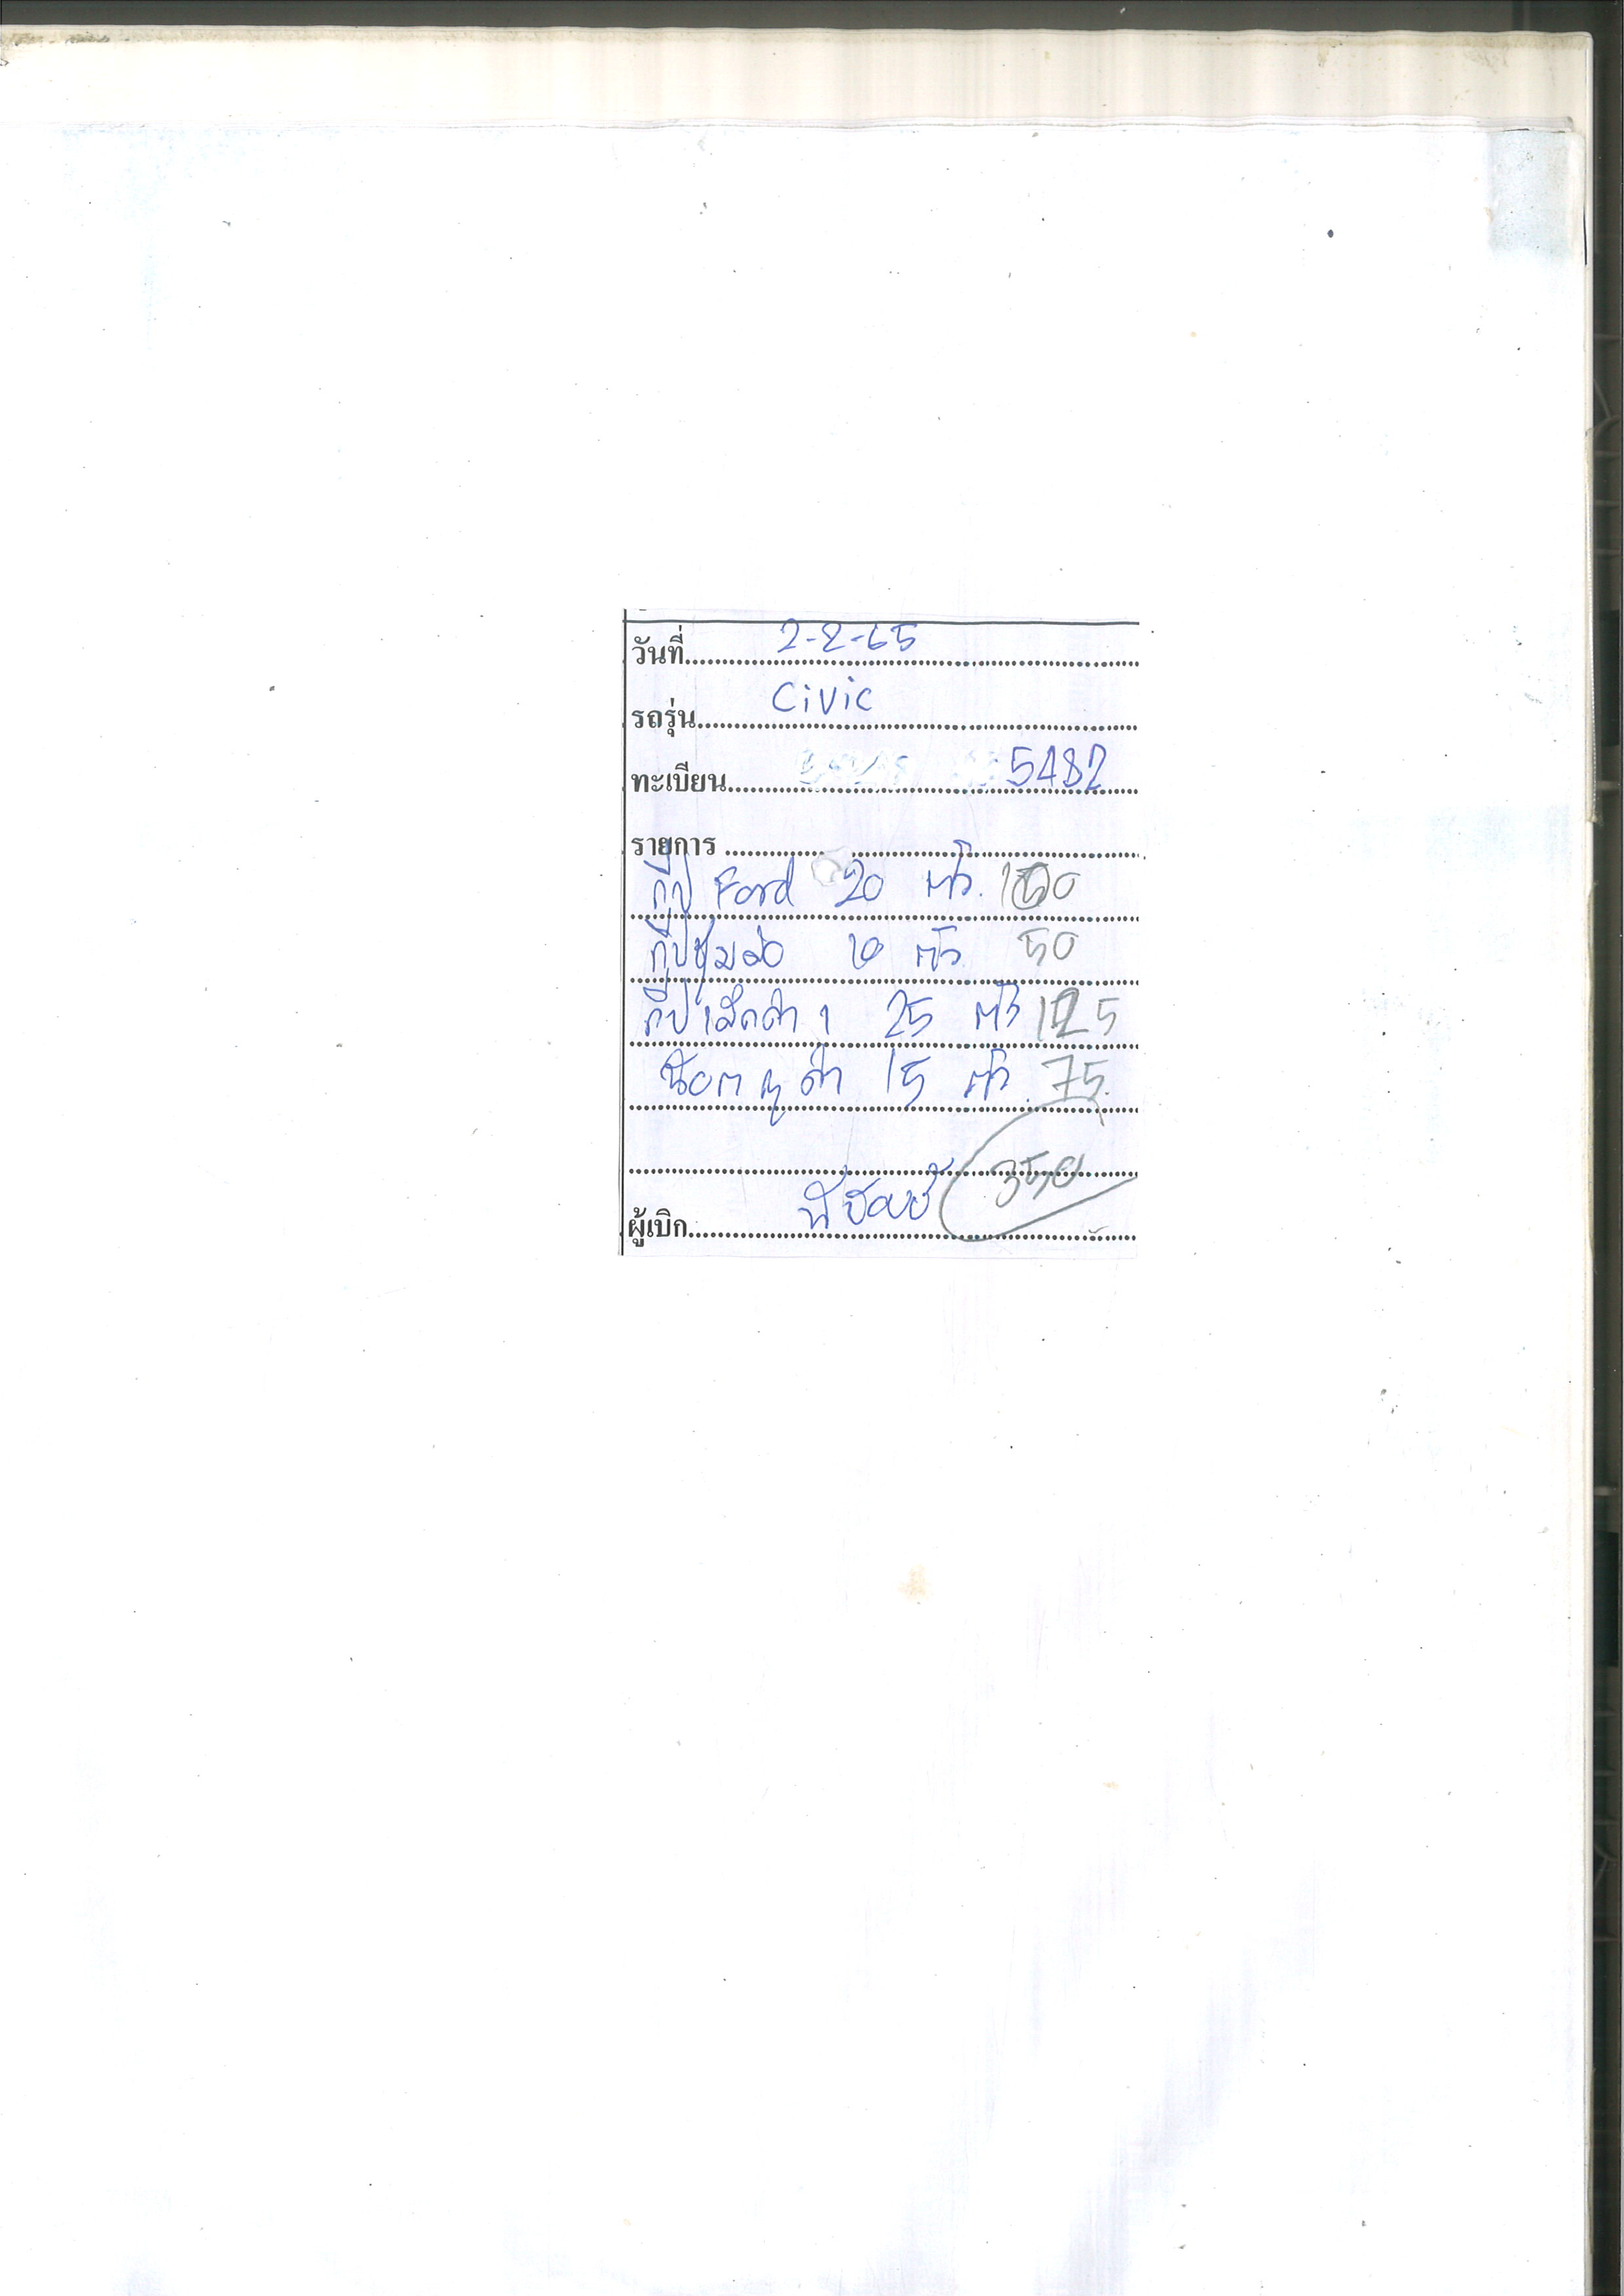 วันที่ 2-2-65
รถรุ่น Civic
ทะเบียน 5482
รายการ
กิ๊ป Ford 20 ตัว 100
กิ๊ปซุ้มล้อ 10 ตัว 50
กิ๊ปเล็กดำ 1 25 ตัว 125
น๊อตหูดำ 15 ตัว 75
350
ผู้เบิก